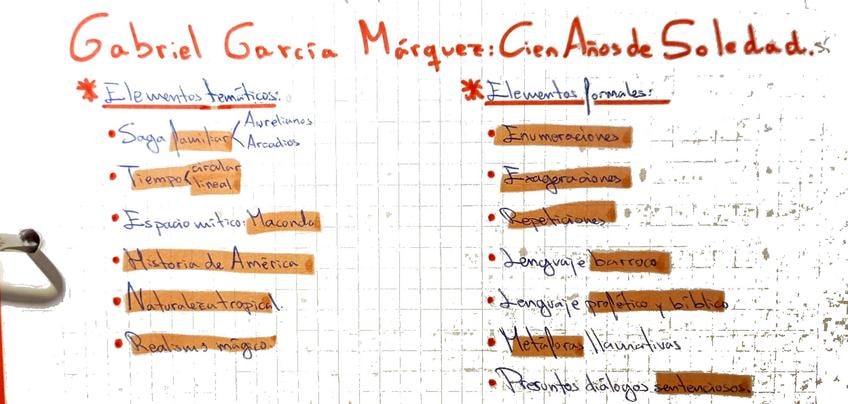 Gabriel García Márquez: Cien Años de Soledad.
* Elementos temáticos:
• Saga familiar < Aurelianos
Arcadios
• Tiempo < circular
lineal
• Espacio mítico: Macondo
• Historia de América
• Naturaleza tropical.
• Realismo mágico
* Elementos formales:
• Enumeraciones
• Exageraciones
• Repeticiones
• Lenguaje barroco
• Lenguaje profético y bíblico
• Metáforas llamativas
• Presuntos diálogos sentenciosos.